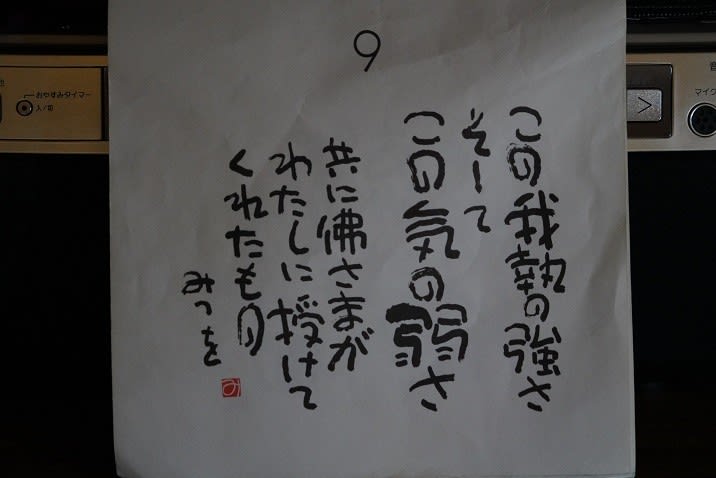 9
この我執の強さ
そして
この気の弱さ
共に佛さまが
わたしに授けて
くれたもの
みつを
み
おやすみタイマー
入/切
マイク